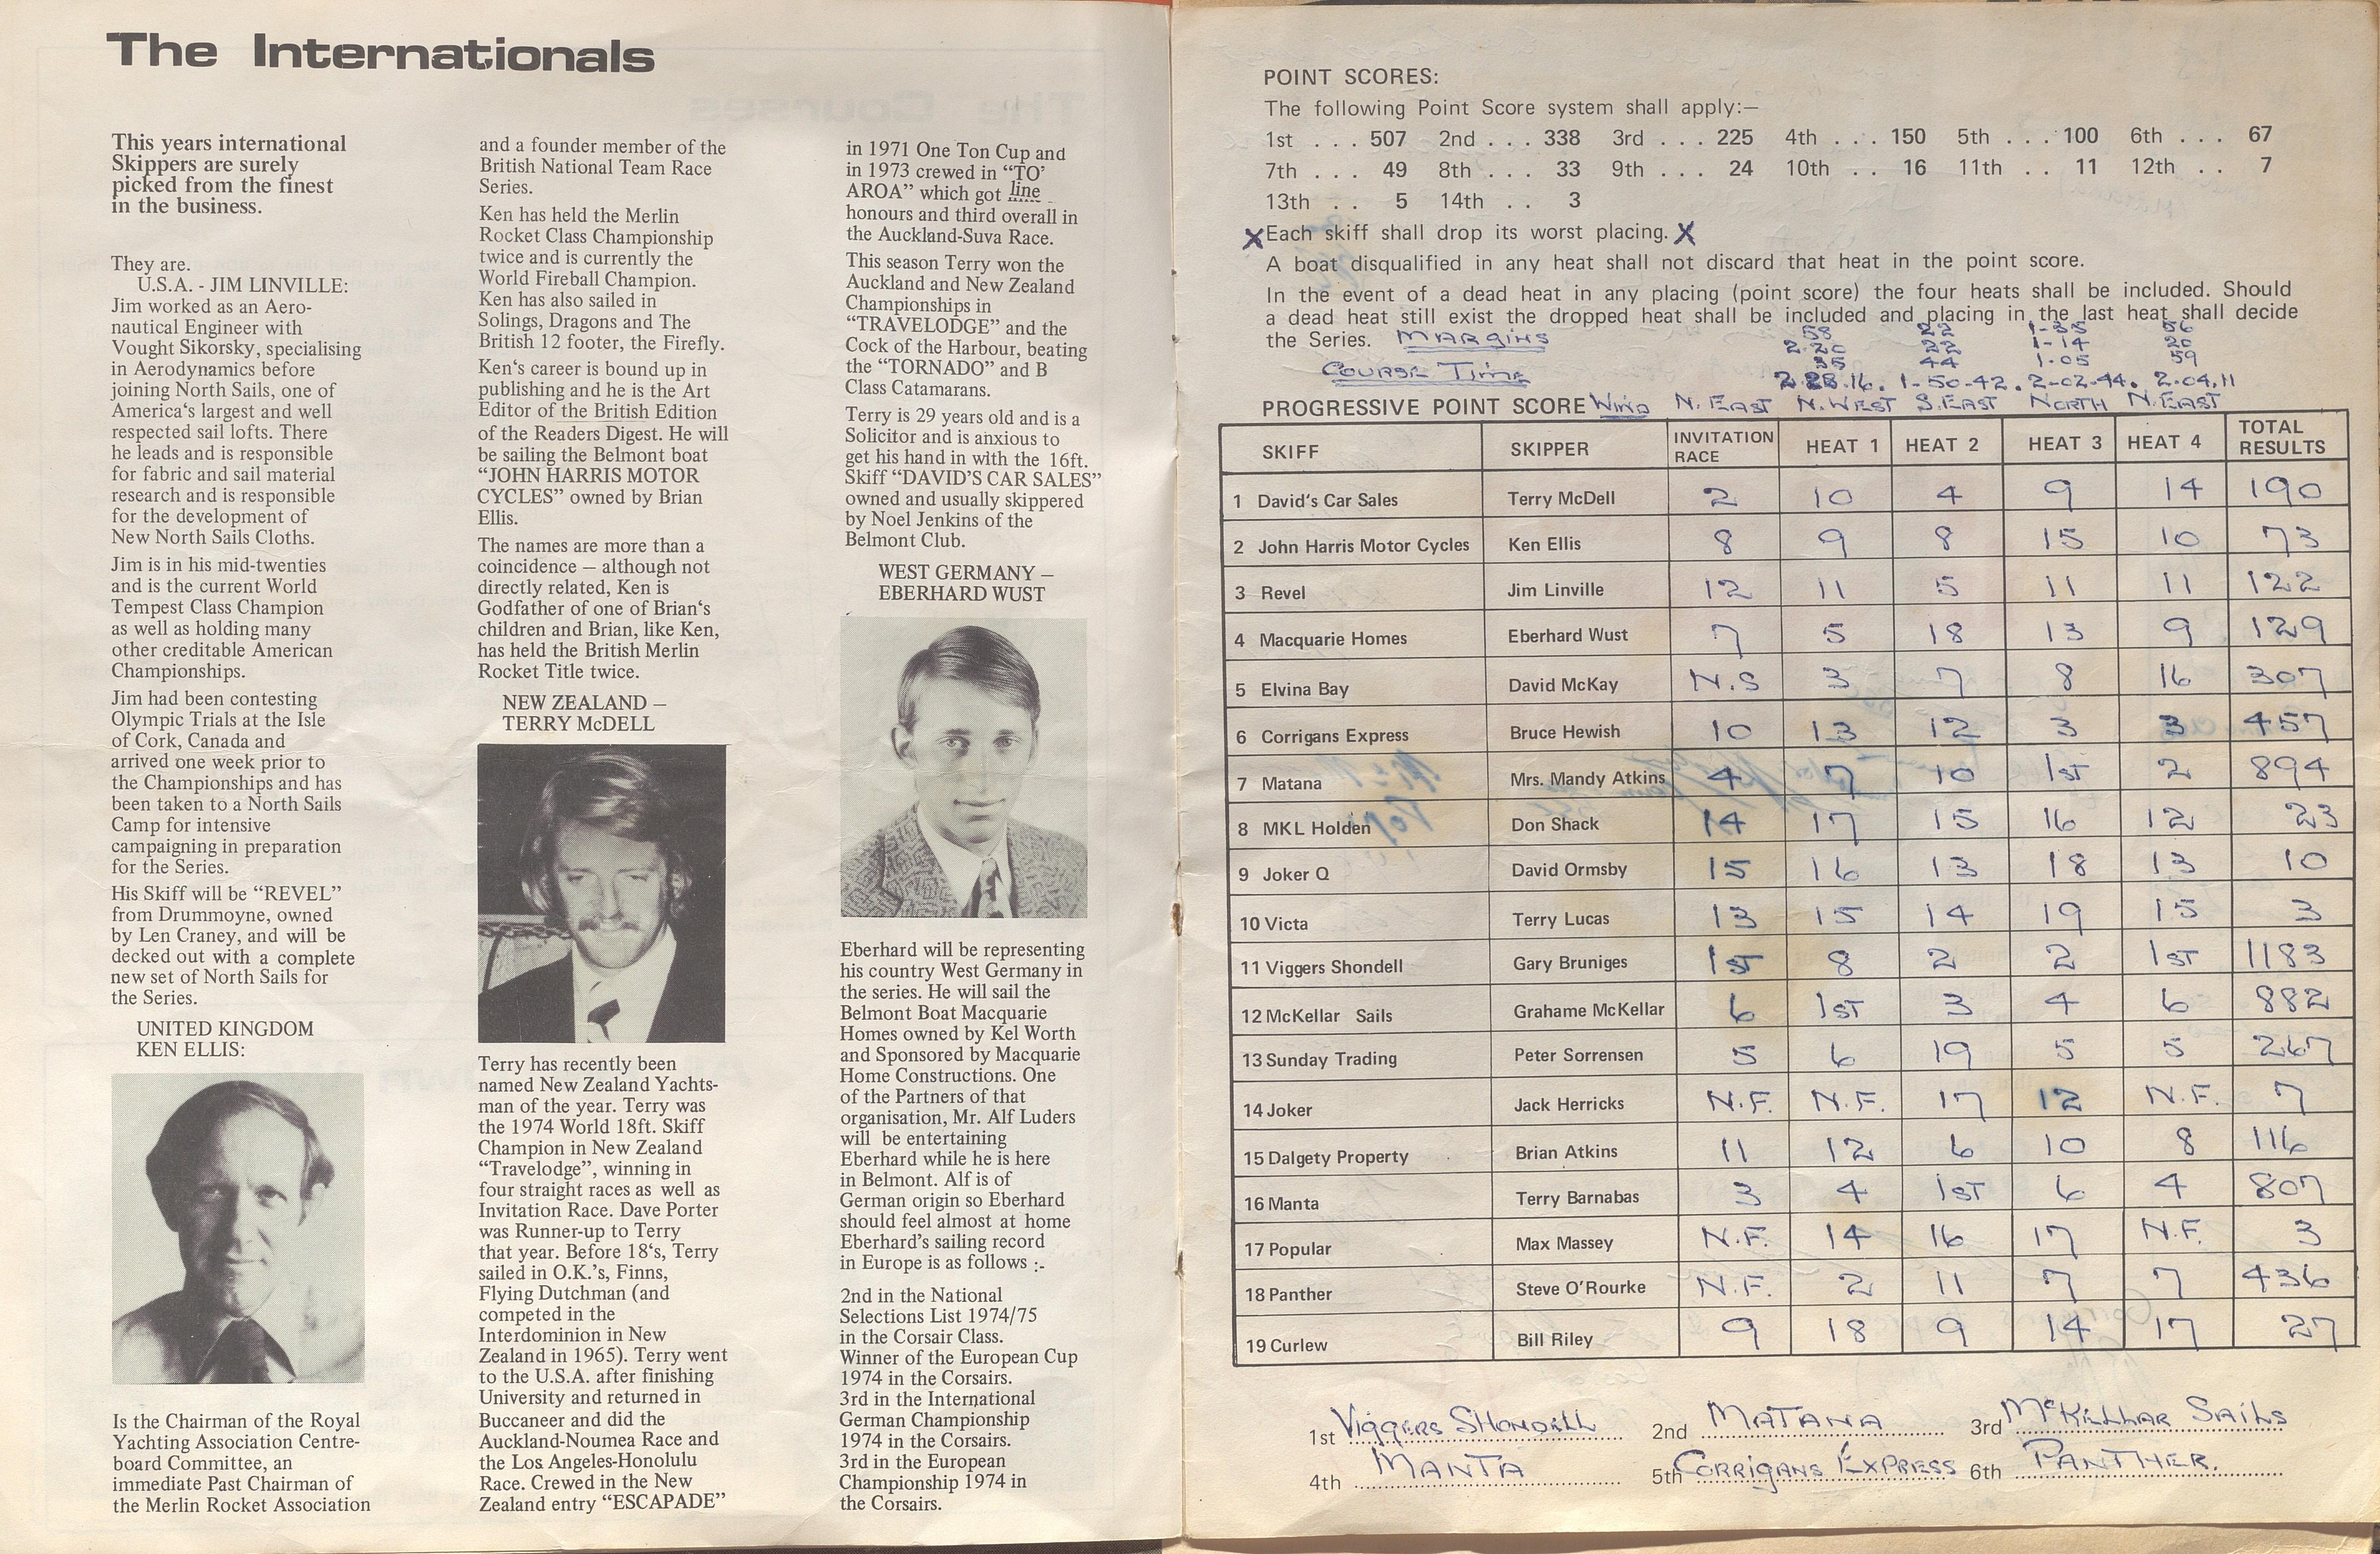 The Internationals
This years international
Skippers are surely
picked from the finest
in the business.
They are.
U.S.A. - JIM LINVILLE:
Jim worked as an Aero-
nautical Engineer with
Vought Sikorsky, specialising
in Aerodynamics before
joining North Sails, one of
America's largest and well
respected sail lofts. There
he leads and is responsible
for fabric and sail material
research and is responsible
for the development of
New North Sails Cloths.
Jim is in his mid-twenties
and is the current World
Tempest Class Champion
as well as holding many
other creditable American
Championships.
Jim had been contesting
Olympic Trials at the Isle
of Cork, Canada and
arrived one week prior to
the Championships and has
been taken to a North Sails
Camp for intensive
campaigning in preparation
for the Series.
His Skiff will be “REVEL”
from Drummoyne, owned
by Len Craney, and will be
decked out with a complete
new set of North Sails for
the Series.
UNITED KINGDOM
KEN ELLIS:
Is the Chairman of the Royal
Yachting Association Centre-
board Committee, an
immediate Past Chairman of
the Merlin Rocket Association
and a founder member of the
British National Team Race
Series.
Ken has held the Merlin
Rocket Class Championship
twice and is currently the
World Fireball Champion.
Ken has also sailed in
Solings, Dragons and The
British 12 footer, the Firefly.
Ken's career is bound up in
publishing and he is the Art
Editor of the British Edition
of the Readers Digest. He will
be sailing the Belmont boat
“JOHN HARRIS MOTOR
CYCLES” owned by Brian
Ellis.
The names are more than a
coincidence – although not
directly related, Ken is
Godfather of one of Brian's
children and Brian, like Ken,
has held the British Merlin
Rocket Title twice.
NEW ZEALAND –
TERRY McDELL
Terry has recently been
named New Zealand Yachts-
man of the year. Terry was
the 1974 World 18ft. Skiff
Champion in New Zealand
“Travelodge”, winning in
four straight races as well as
Invitation Race. Dave Porter
was Runner-up to Terry
that year. Before 18's, Terry
sailed in O.K.'s, Finns,
Flying Dutchman (and
competed in the
Interdominion in New
Zealand in 1965). Terry went
to the U.S.A. after finishing
University and returned in
Buccaneer and did the
Auckland-Noumea Race and
the Los Angeles-Honolulu
Race. Crewed in the New
Zealand entry “ESCAPADE”
in 1971 One Ton Cup and
in 1973 crewed in “TO'
AROA” which got line
honours and third overall in
the Auckland-Suva Race.
This season Terry won the
Auckland and New Zealand
Championships in
“TRAVELODGE” and the
Cock of the Harbour, beating
the “TORNADO” and B
Class Catamarans.
Terry is 29 years old and is a
Solicitor and is anxious to
get his hand in with the 16ft.
Skiff “DAVID'S CAR SALES”
owned and usually skippered
by Noel Jenkins of the
Belmont Club.
WEST GERMANY –
EBERHARD WUST
Eberhard will be representing
his country West Germany in
the series. He will sail the
Belmont Boat Macquarie
Homes owned by Kel Worth
and Sponsored by Macquarie
Home Constructions. One
of the Partners of that
organisation, Mr. Alf Luders
will be entertaining
Eberhard while he is here
in Belmont. Alf is of
German origin so Eberhard
should feel almost at home
Eberhard's sailing record
in Europe is as follows :-
2nd in the National
Selections List 1974/75
in the Corsair Class.
Winner of the European Cup
1974 in the Corsairs.
3rd in the International
German Championship
1974 in the Corsairs.
3rd in the European
Championship 1974 in
the Corsairs.
POINT SCORES:
The following Point Score system shall apply:–
1st ... 507 2nd ... 338 3rd ... 225 4th ... 150 5th ... 100 6th ... 67
7th ... 49 8th ... 33 9th ... 24 10th .. 16 11th .. 11 12th .. 7
13th .. 5 14th .. 3
X Each skiff shall drop its worst placing. X
A boat disqualified in any heat shall not discard that heat in the point score.
In the event of a dead heat in any placing (point score) the four heats shall be included. Should
a dead heat still exist the dropped heat shall be included and placing in the last heat shall decide
the Series. MARGINS 58 22 1-35 56
2.20 22 1-14 20
35 44 1.05 59
COURSE TIME 2.28.16. 1-50-42. 2-02-44. 2.04.11
PROGRESSIVE POINT SCORE WIND N. EAST N. WEST S. EAST NORTH N. EAST
SKIFF SKIPPER INVITATION RACE HEAT 1 HEAT 2 HEAT 3 HEAT 4 TOTAL RESULTS
1 David's Car Sales Terry McDell 2 10 4 9 14 190
2 John Harris Motor Cycles Ken Ellis 8 9 8 15 10 73
3 Revel Jim Linville 12 11 5 11 11 122
4 Macquarie Homes Eberhard Wust 7 5 18 13 9 129
5 Elvina Bay David McKay N.S 3 7 8 16 307
6 Corrigans Express Bruce Hewish 10 13 12 3 3 457
7 Matana Mrs. Mandy Atkins 4 7 10 1ST 2 894
8 MKL Holden Don Shack 14 17 15 16 12 23
9 Joker Q David Ormsby 15 16 13 18 13 10
10 Victa Terry Lucas 13 15 14 19 15 3
11 Viggers Shondell Gary Bruniges 1ST 8 2 2 1ST 1183
12 McKellar Sails Grahame McKellar 6 1ST 3 4 6 882
13 Sunday Trading Peter Sorrensen 5 6 19 5 5 267
14 Joker Jack Herricks N.F. N.F. 17 12 N.F. 7
15 Dalgety Property Brian Atkins 11 12 6 10 8 116
16 Manta Terry Barnabas 3 4 1ST 6 4 807
17 Popular Max Massey N.F. 14 16 17 N.F. 3
18 Panther Steve O'Rourke N.F. 2 11 7 7 436
19 Curlew Bill Riley 9 18 9 14 17 27
1st VIGGERS SHONDELL 2nd MATANA 3rd McKELLAR SAILS
4th MANTA 5th CORRIGANS EXPRESS 6th PANTHER.